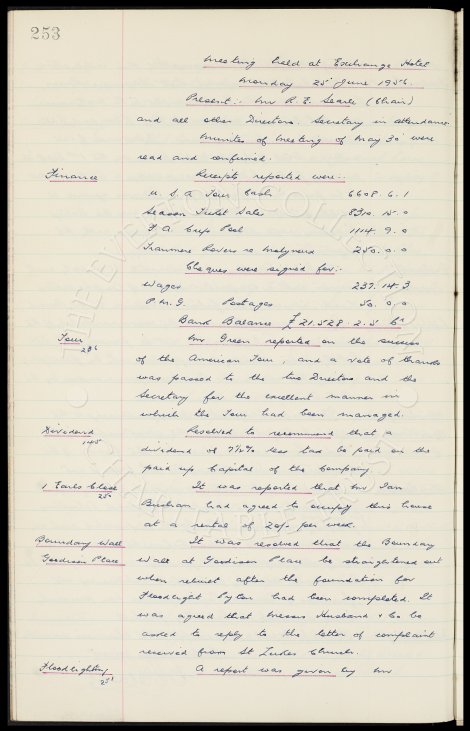 253
Meeting held at Exchange Hotel
Monday 25 June 1956.
Present:- Mr R. E. Searle (Chair)
and all other Directors. Secretary in attendance
Minutes of meeting of May 30 were
read and confirmed.
Finance Receipts reported were:-
U. S. A Tour Cash 6608. 6. 1
Season Ticket Sales 8310. 15. 0
F. A. Cup Pool 1114. 9. 0
Tranmere Rovers re Molyneux 250. 0. 0
Cheques were signed for:-
Wages 237. 14. 3
P. M. G. Postages 50. 0. 0
Bank Balance £ 21,528. 2. 5
Tour Mr Green reported on the success
of the American Tour, and a vote of thanks
was passed to the two Directors and the
Secretary for the excellent manner in
which the Tour had been managed.
Dividend Resolved to recommend that a
dividend of 7½% less tax be paid on the
paid up Capital of the Company.
1 Earls Close It was reported that Mr Ian
Buchan had agreed to occupy this house
at a rental of 20/- per week.
Boundary Wall It was resolved that the Boundary
Goodison Place Wall at Goodison Place be straightened out
when rebuilt after the foundation for
Floodlight Pylon had been completed. It
was agreed that Messrs Husband & Co be
asked to reply to the letter of complaint
received from St Lukes Church.
Floodlighting A report was given by Mr
THE EVERTON COLLECTION